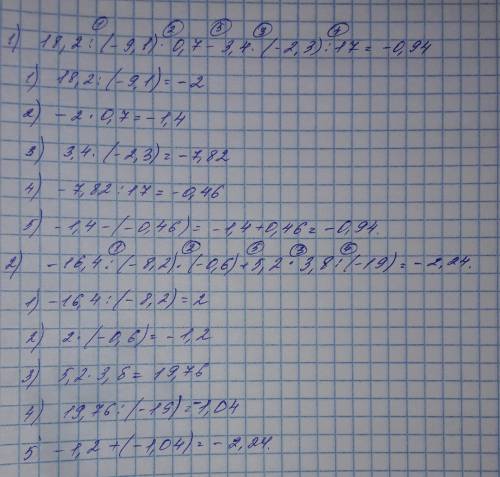 ① ② ⑤ ③ ④
1) 18,2 : (-9,1) · 0,7 - 3,4 · (-2,3) : 17 = -0,94
1) 18,2 : (-9,1) = -2
2) -2 · 0,7 = -1,4
3) 3,4 · (-2,3) = -7,82
4) -7,82 : 17 = -0,46
5) -1,4 - (-0,46) = -1,4 + 0,46 = -0,94.
① ② ⑤ ③ ⑤
2) -16,4 : (-8,2) · (-0,6) + 5,2 · 3,8 : (-19) = -2,24.
1) -16,4 : (-8,2) = 2
2) 2 · (-0,6) = -1,2
3) 5,2 · 3,8 = 19,76
4) 19,76 : (-19) = -1,04
5 -1,2 + (-1,04) = -2,24.